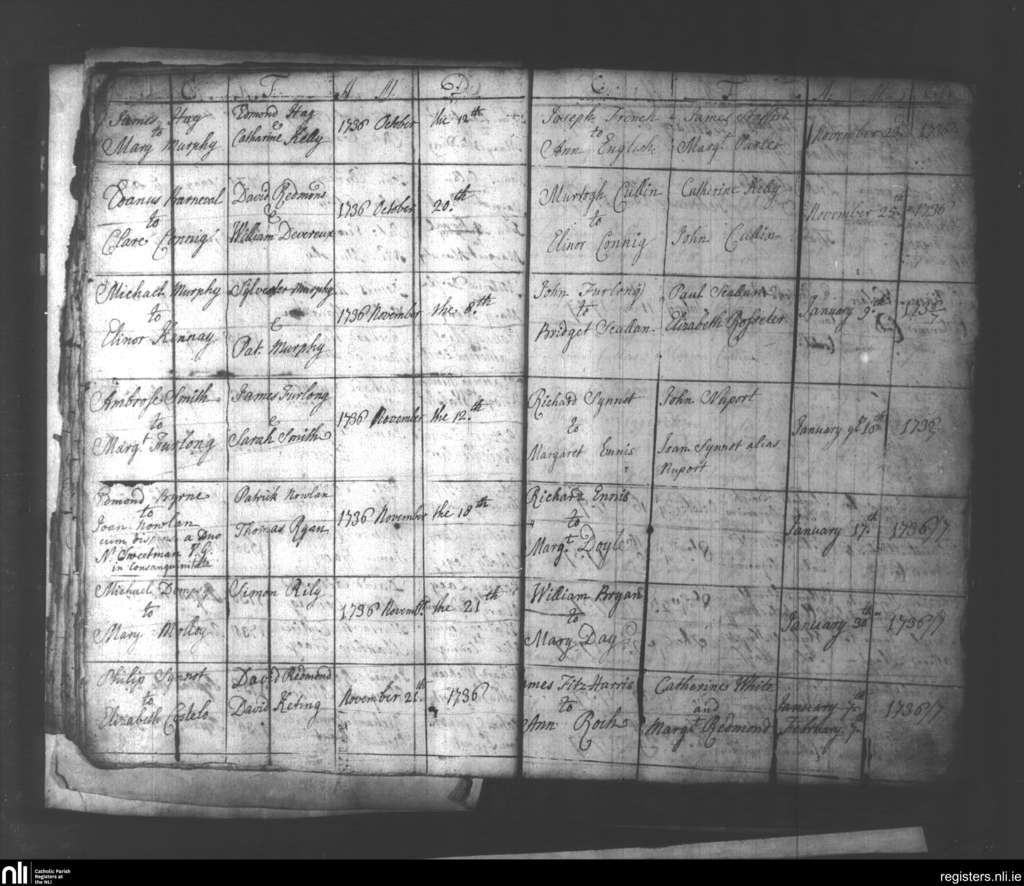 C. F. M D
James Hay
to
Mary Murphy
Edmond Hay
&
Catharine Kelly
1736 October the 12.th
Evanus Karneval
to
Clare Connig
David Redmond
&
William Devereux
1736 October 20.th
Michael Murphy
to
Elinor Kinnay
Sylvester Murphy
&
Pat. Murphy
1736 November the 8.th
Ambrose Smith
to
Marg.t Furlong
James Furlong
&
Sarah Smith
1736 November the 12.th
Edmond Byrne
to
Joan Nowlan
cum dispens: a Duo
N. Sweetman V.G.
in Consanguinitate
Patrick Nowlan
Thomas Ryan
1736 November the 18.th
Michael
to
Mary Molloy
Simon Rily
1736 Novemb.r the 21.th
Philip Synnot
to
Elizabeth
David Redmond
David Keting
November 21.th 1736
C. F. M
Joseph French
to
Ann English
James Stafford
Marg.t
November 1736
Murtogh Cullin
to
Elinor Connig
Catherine Kelly
John Cullin
November 25.th 1736
John Furlong
to
Bridget Scallan
Paul Scallan
Elizabeth Rosseter
January 9.th 1736/7
Richard Synnot
to
Margaret Ennis
John Nuport
Joan Synnot alias
Nuport
January 10.th 1736
Richard Ennis
to
Marg.t Doyle
January 17.th 1736/7
William Bryan
to
Mary Day
January 30.th 1736/7
James Fitz Harris
to
Ann Roch
Catherine White
and
Marg.t Redmond
January 7.th
February 7.th
1736/7
nli
Catholic Parish
Registers at
the NLI
registers.nli.ie